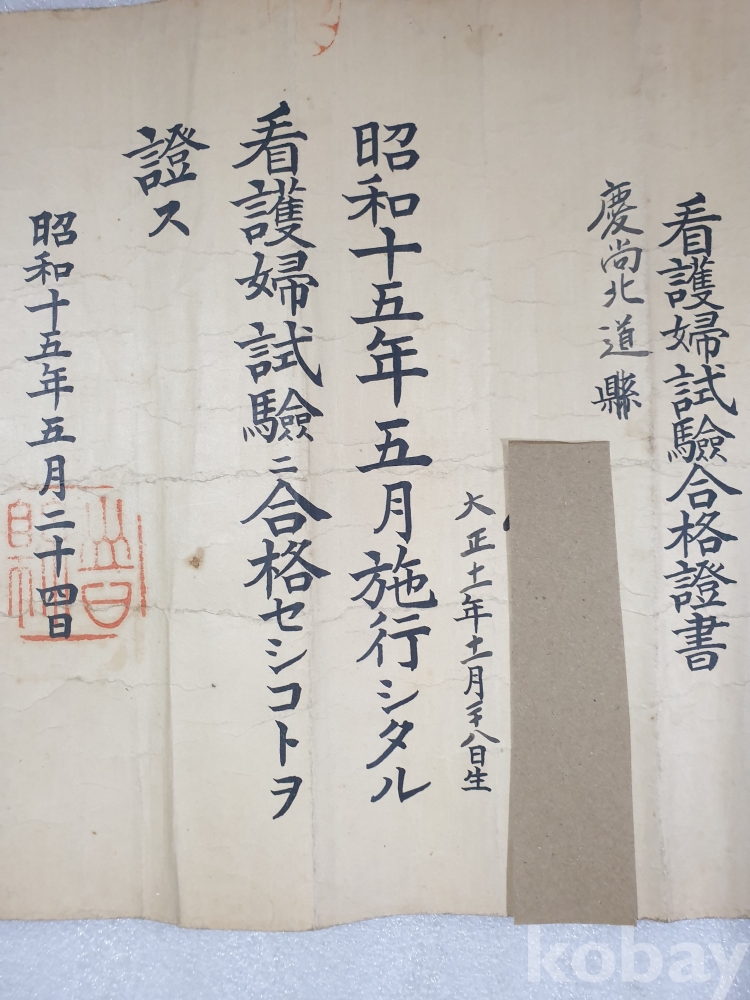 看護婦試驗合格證書
慶尚北道縣
大正十一年十一月二十八日生
昭和十五年五月施行シタル
看護婦試驗ニ合格セシコトヲ
證ス
昭和十五年五月二十四日
kobay